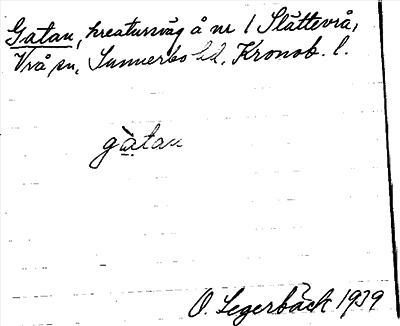 Gatan, kreatursväg å nr 1 Slättevrå,
Vrå sn, Sunnerbo hd, Kronob. l.
gàtan
O. Segerbäck 1939